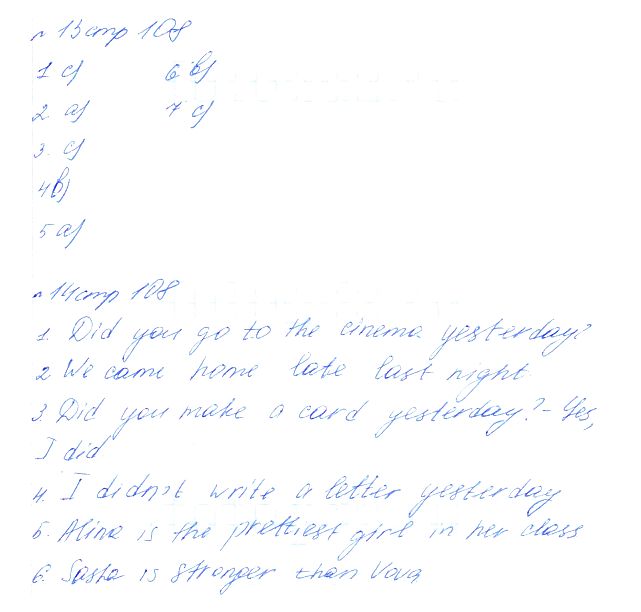 n 13 стр 108
1 c) 6 b)
2 a) 7 c)
3. c)
4 b)
5 a)
n 14 стр 108
1. Did you go to the cinema yesterday?
2 We came home late last night
3. Did you make a card yesterday? - Yes,
I did
4. I didn't write a letter yesterday
5. Alina is the prettiest girl in her class
6. Sasha is stronger than Vova